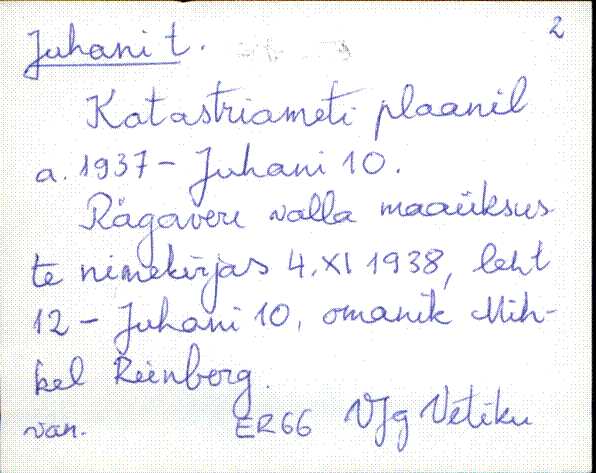 2
Juhani t.
Katastriameti plaanil
a. 1937 – Juhani 10.
Rägavere valla maaüksus
te nimekirjas 4.XI 1938, leht
12 – Juhani 10, omanik Mih-
kel Reinberg.
van. ER66 VJg Vetiku